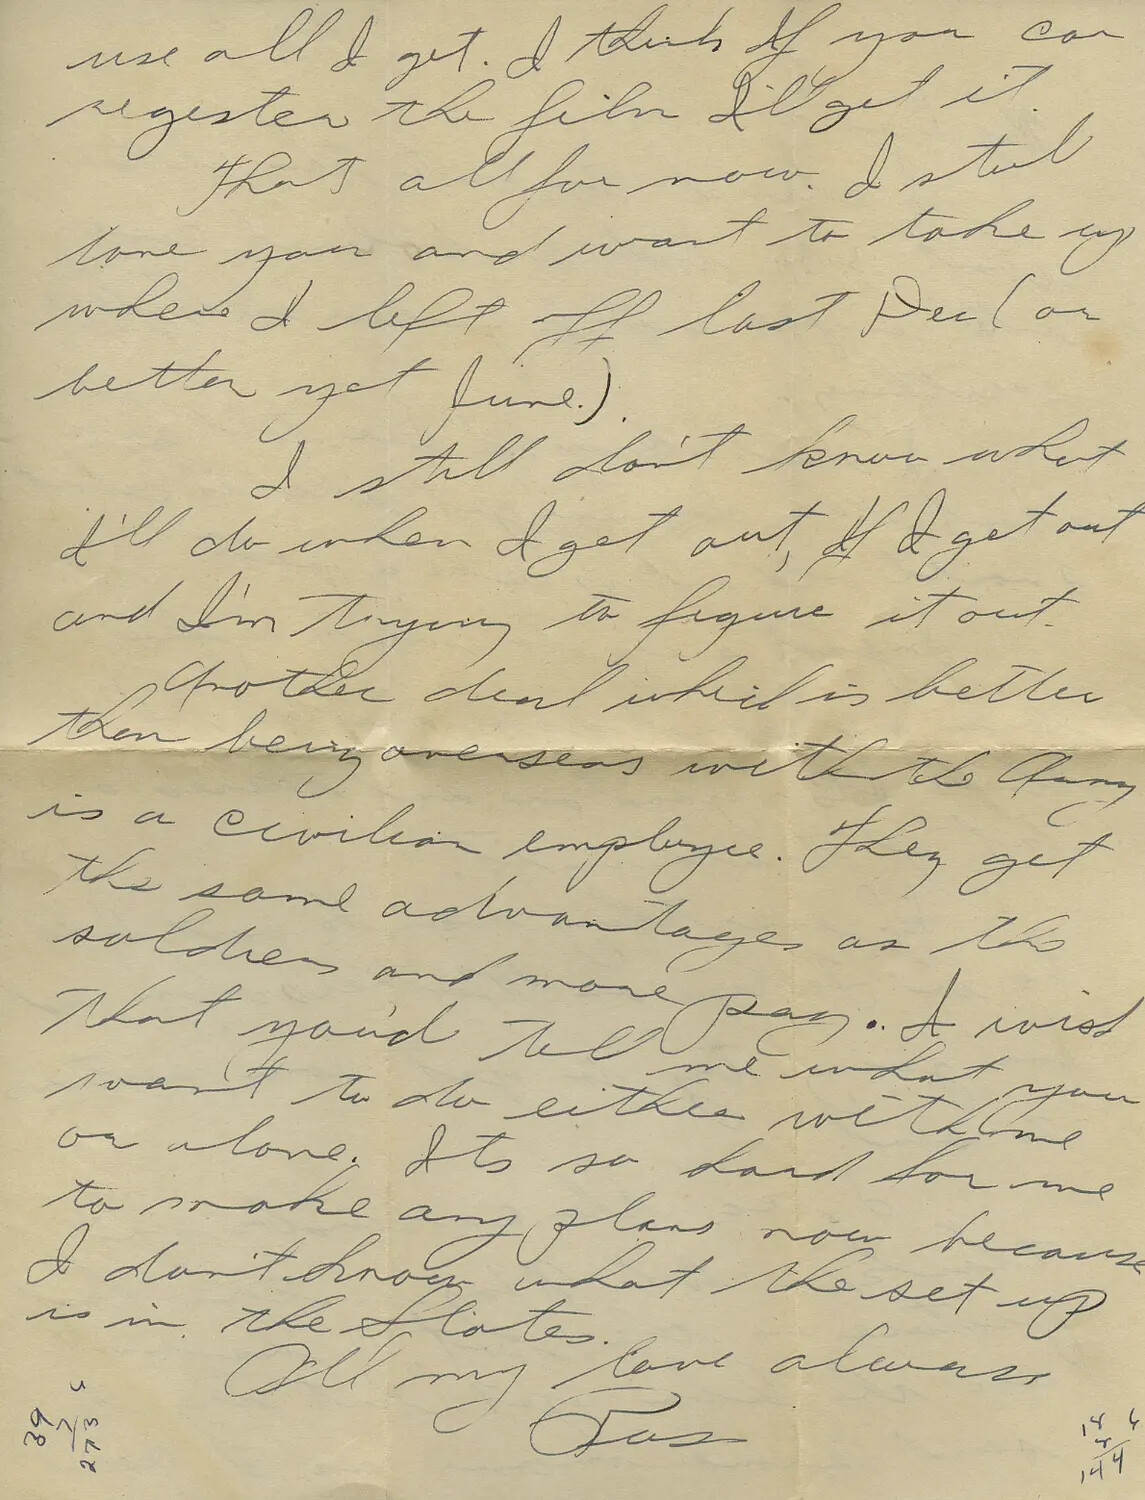 use all I get. I think If you can
regester the film I'll get it.
That's all for now. I still
love you and want to take up
where I left off last Dec (or
better yet June.)
I still don't know what
I'll do when I get out, If I get out
and I'm trying to figure it out.
Another deal which is better
then being overseas with the Army
is a civilian employee. They get
the same advantages as the
soldiers and more pay. I wish
that you'd tell me what you
want to do either with me
or alone. Its so hard for me
to make any plans now because
I don't know what the set up
is in the States.
All my love always
Russ
39
7
273
6
144